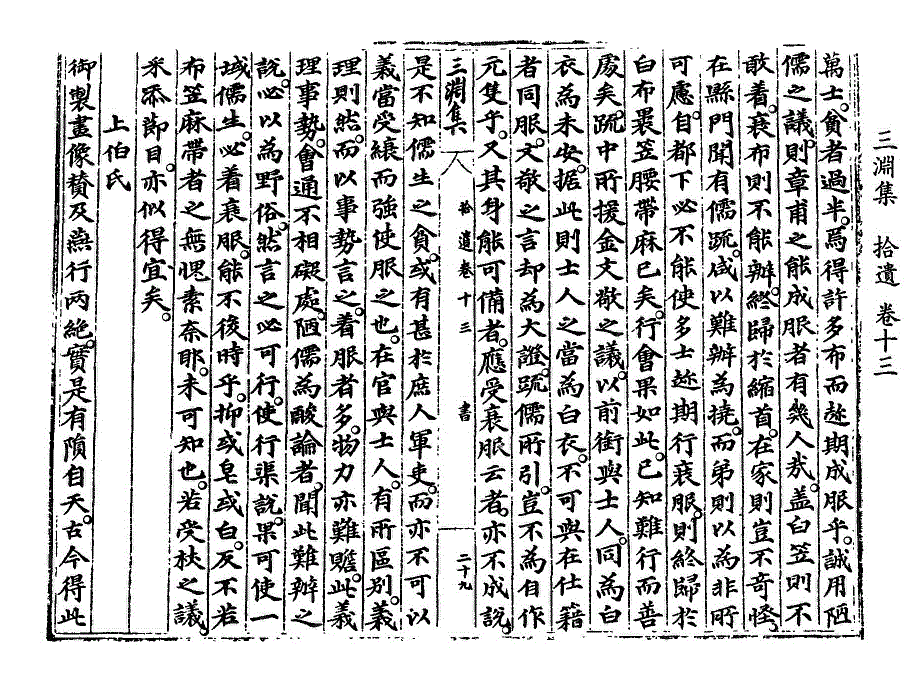 三淵集 拾遺 卷十三
萬士。貧者過半。焉得許多布而趁期成服乎。誠用陋
儒之議。則章甫之能成服者有幾人哉。盖白笠則不
敢着。衰布則不能辦。終歸於縮首。在家則豈不奇怪。
在縣門聞有儒疏。咸以難辦為撓。而弟則以為非所
可慮。自都下必不能使多士趁期行衰服。則終歸於
白布裹笠腰帶麻已矣。行會果如此。已知難行而善
處矣。疏中所援金文敬之議。以前銜與士人。同為白
衣為未安。据此則士人之當為白衣。不可與在仕籍
者同服。文敬之言却為大證。疏儒所引。豈不為自作
元隻乎。又其身能可備者。應受衰服云者。亦不成說。
三淵集 拾遺卷十三 書 二十九
是不知儒生之貧。或有甚於庶人軍吏。而亦不可以
義當受縗而強使服之也。在官與士人。有所區別。義
理則然。而以事勢言之。着服者多。物力亦難贍。此義
理事勢。會通不相礙處。陋儒為酸論者。聞此難辦之
說。必以為野俗。然言之必可行。使行渠說。果可使一
域儒生。必着衰服。能不後時乎。抑或皂或白。反不若
布笠麻帶者之無愧素奈耶。未可知也。若受杖之議。
釆添節目。亦似得宜矣。
上伯氏
御製畫像贊及燕行两絶。實是有隕自天。古今得此